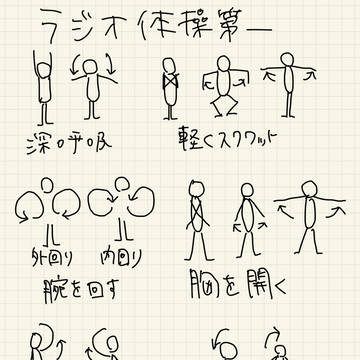 ラジオ体操第一
深呼吸
軽くスクワット
外回り 内回り
腕を回す
胸を開く